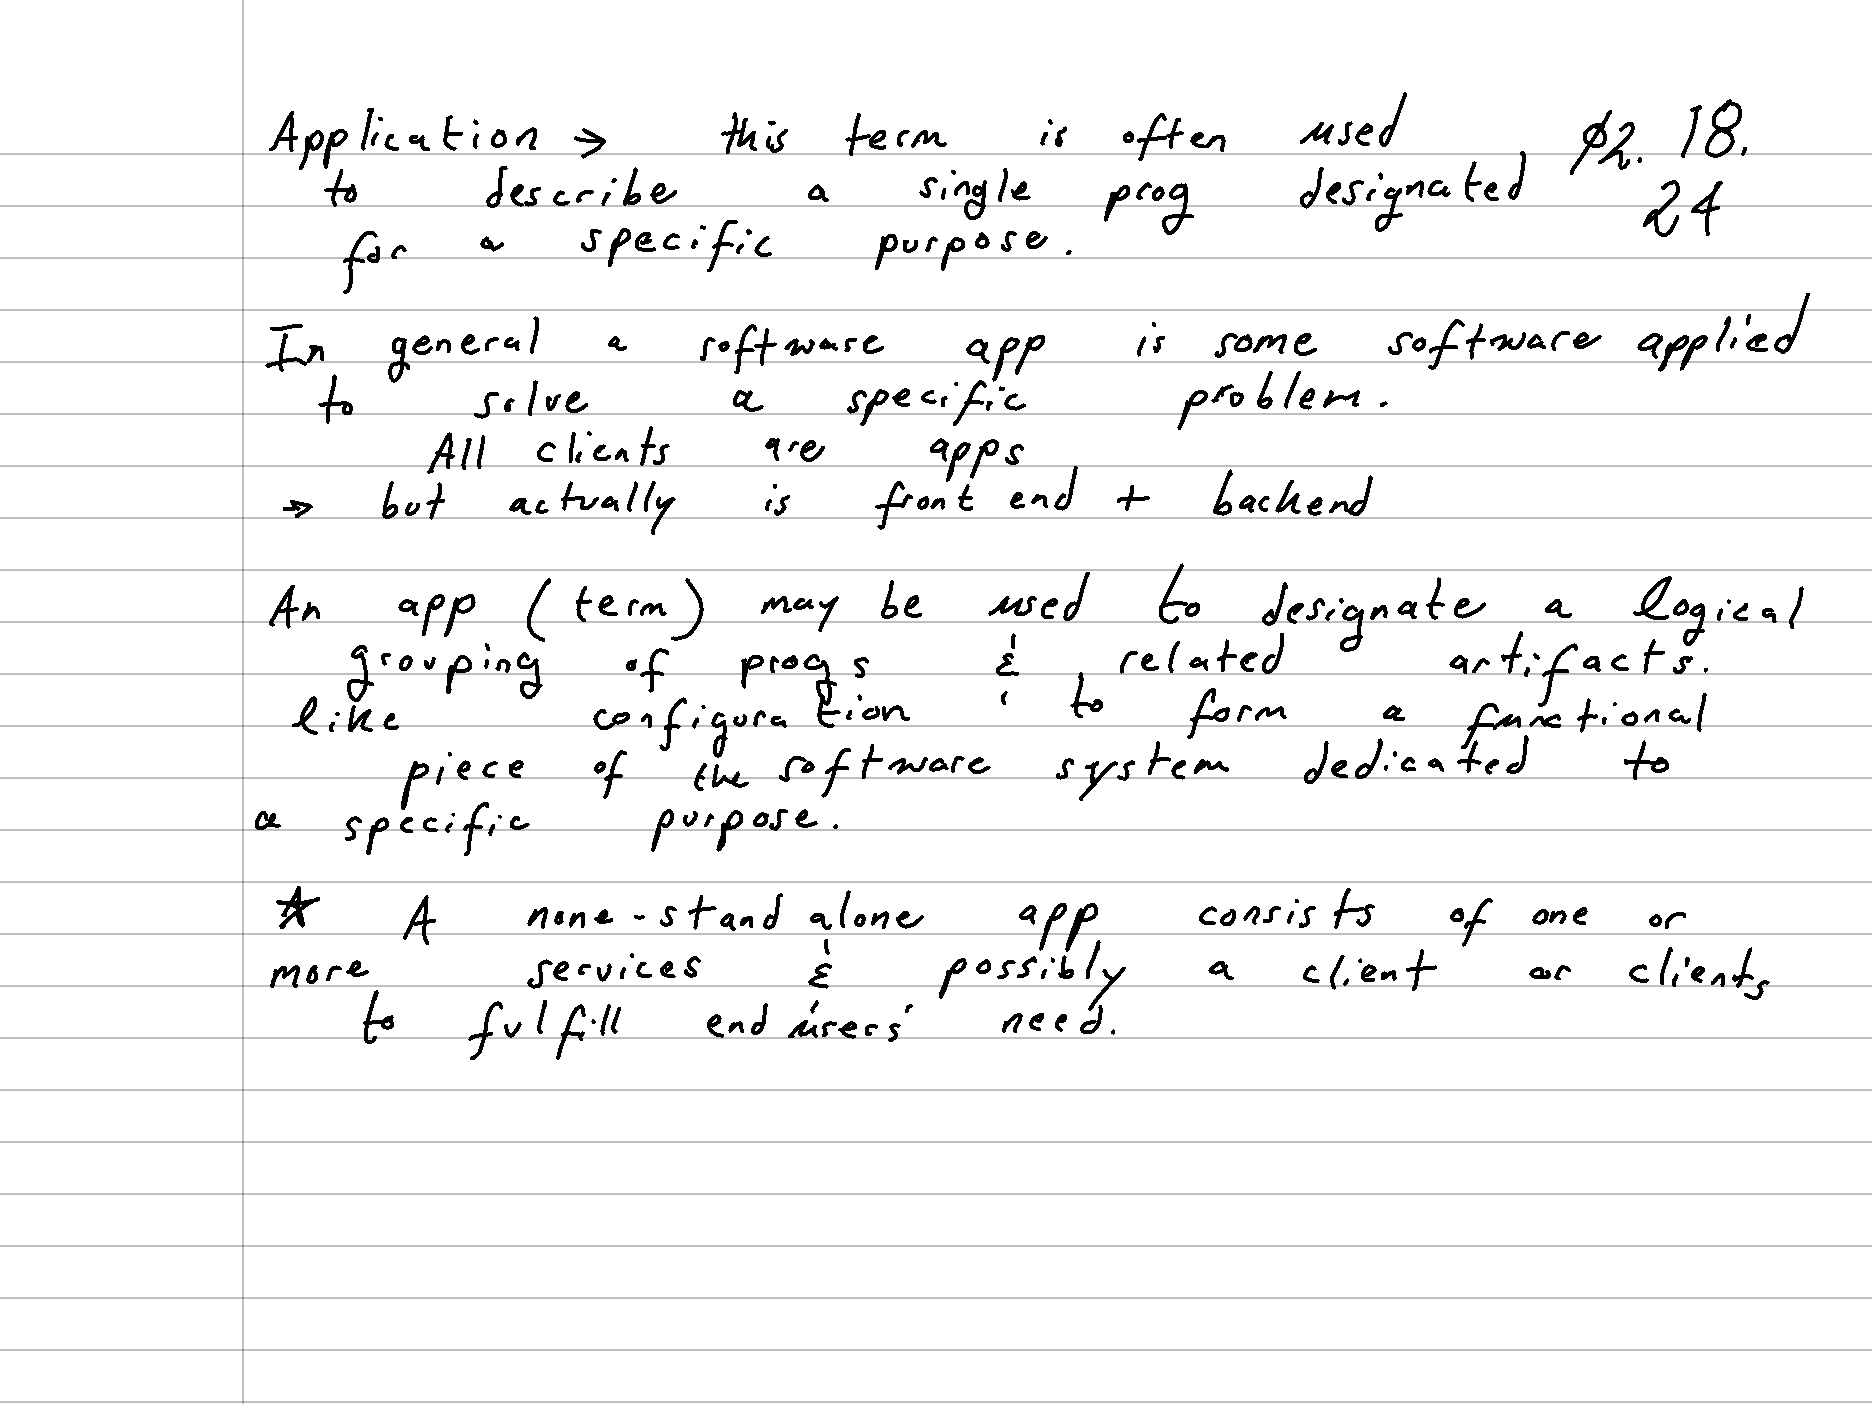 Application → this term is often used 02. 18.
to describe a single prog designated 24
for a specific purpose.
In general a software app is some software applied
to solve a specific problem.
All clients are apps
→ but actually is front end + backend
An app (term) may be used to designate a logical
grouping of progs & related artifacts.
like configuration to form a functional
piece of the software system dedicated to
a specific purpose.
☆ A none-stand alone app consists of one or
more services & possibly a client or clients
to fulfill end users' need.